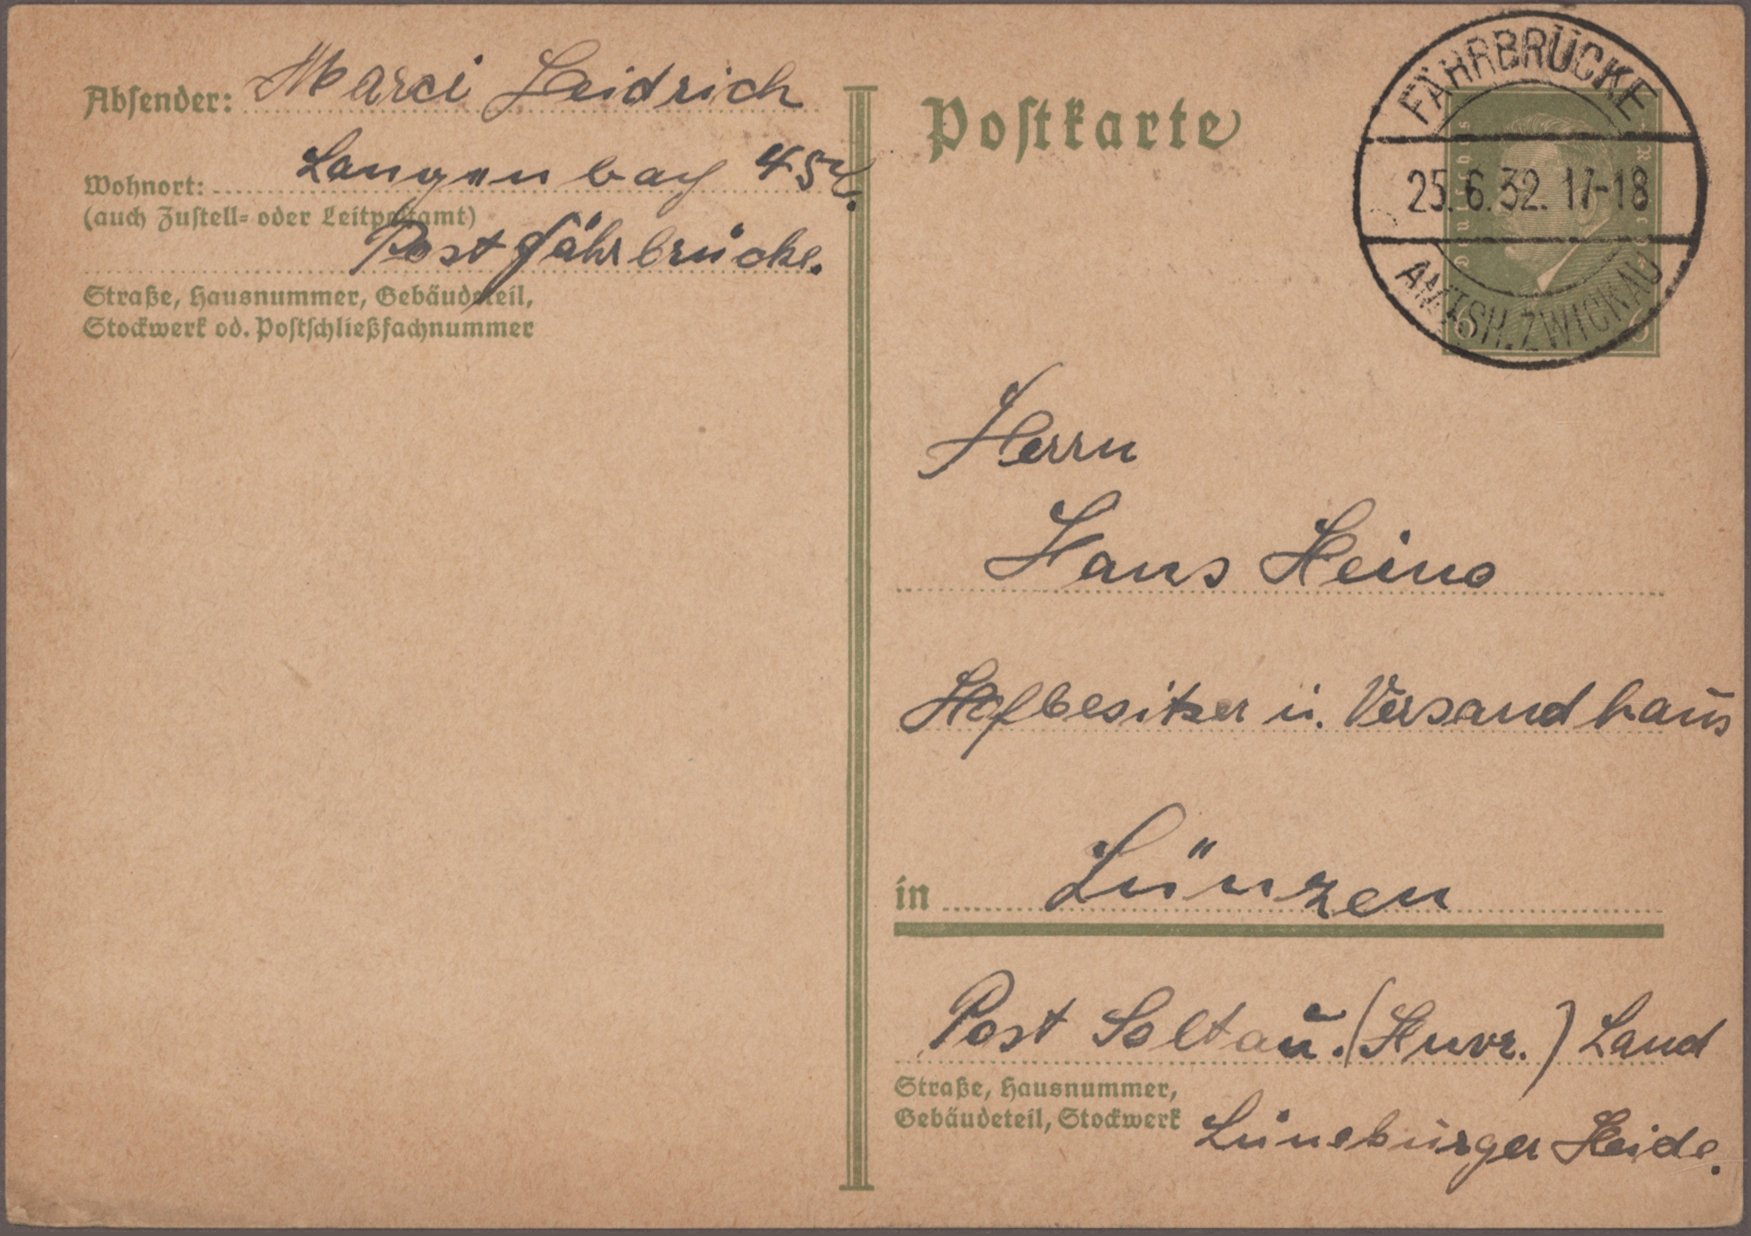 Absender: Marci Leidrich
Wohnort: Langenbach 45
(auch Zustell= oder Leitpostamt)
Post Fährbrücke.
Straße, Hausnummer, Gebäudeteil,
Stockwerk od. Postschließfachnummer
Postkarte
FÄHRBRÜCKE
25.6.32. 17-18
AMTSH. ZWICKAU
Herrn
Hans Heino
Hofbesitzer u. Versandhaus
in Lünzen
Post Soltau. (Hnvr.) Land
Straße, Hausnummer,
Gebäudeteil, Stockwerk
Lüneburger Heide.